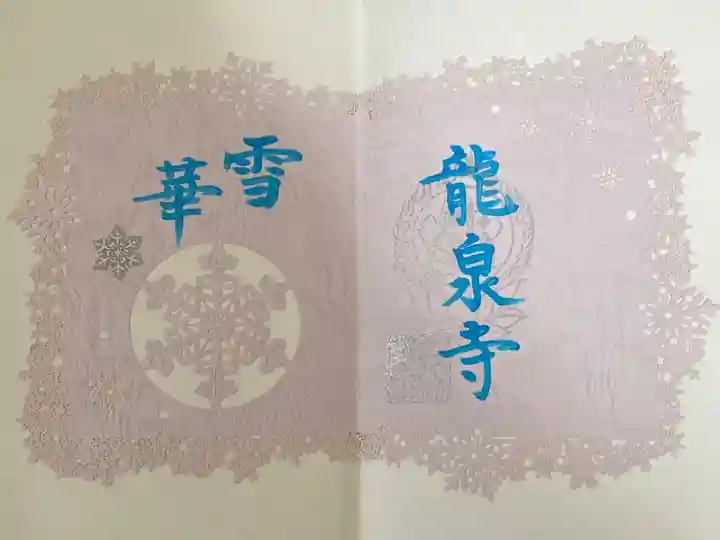 龍泉寺
雪華